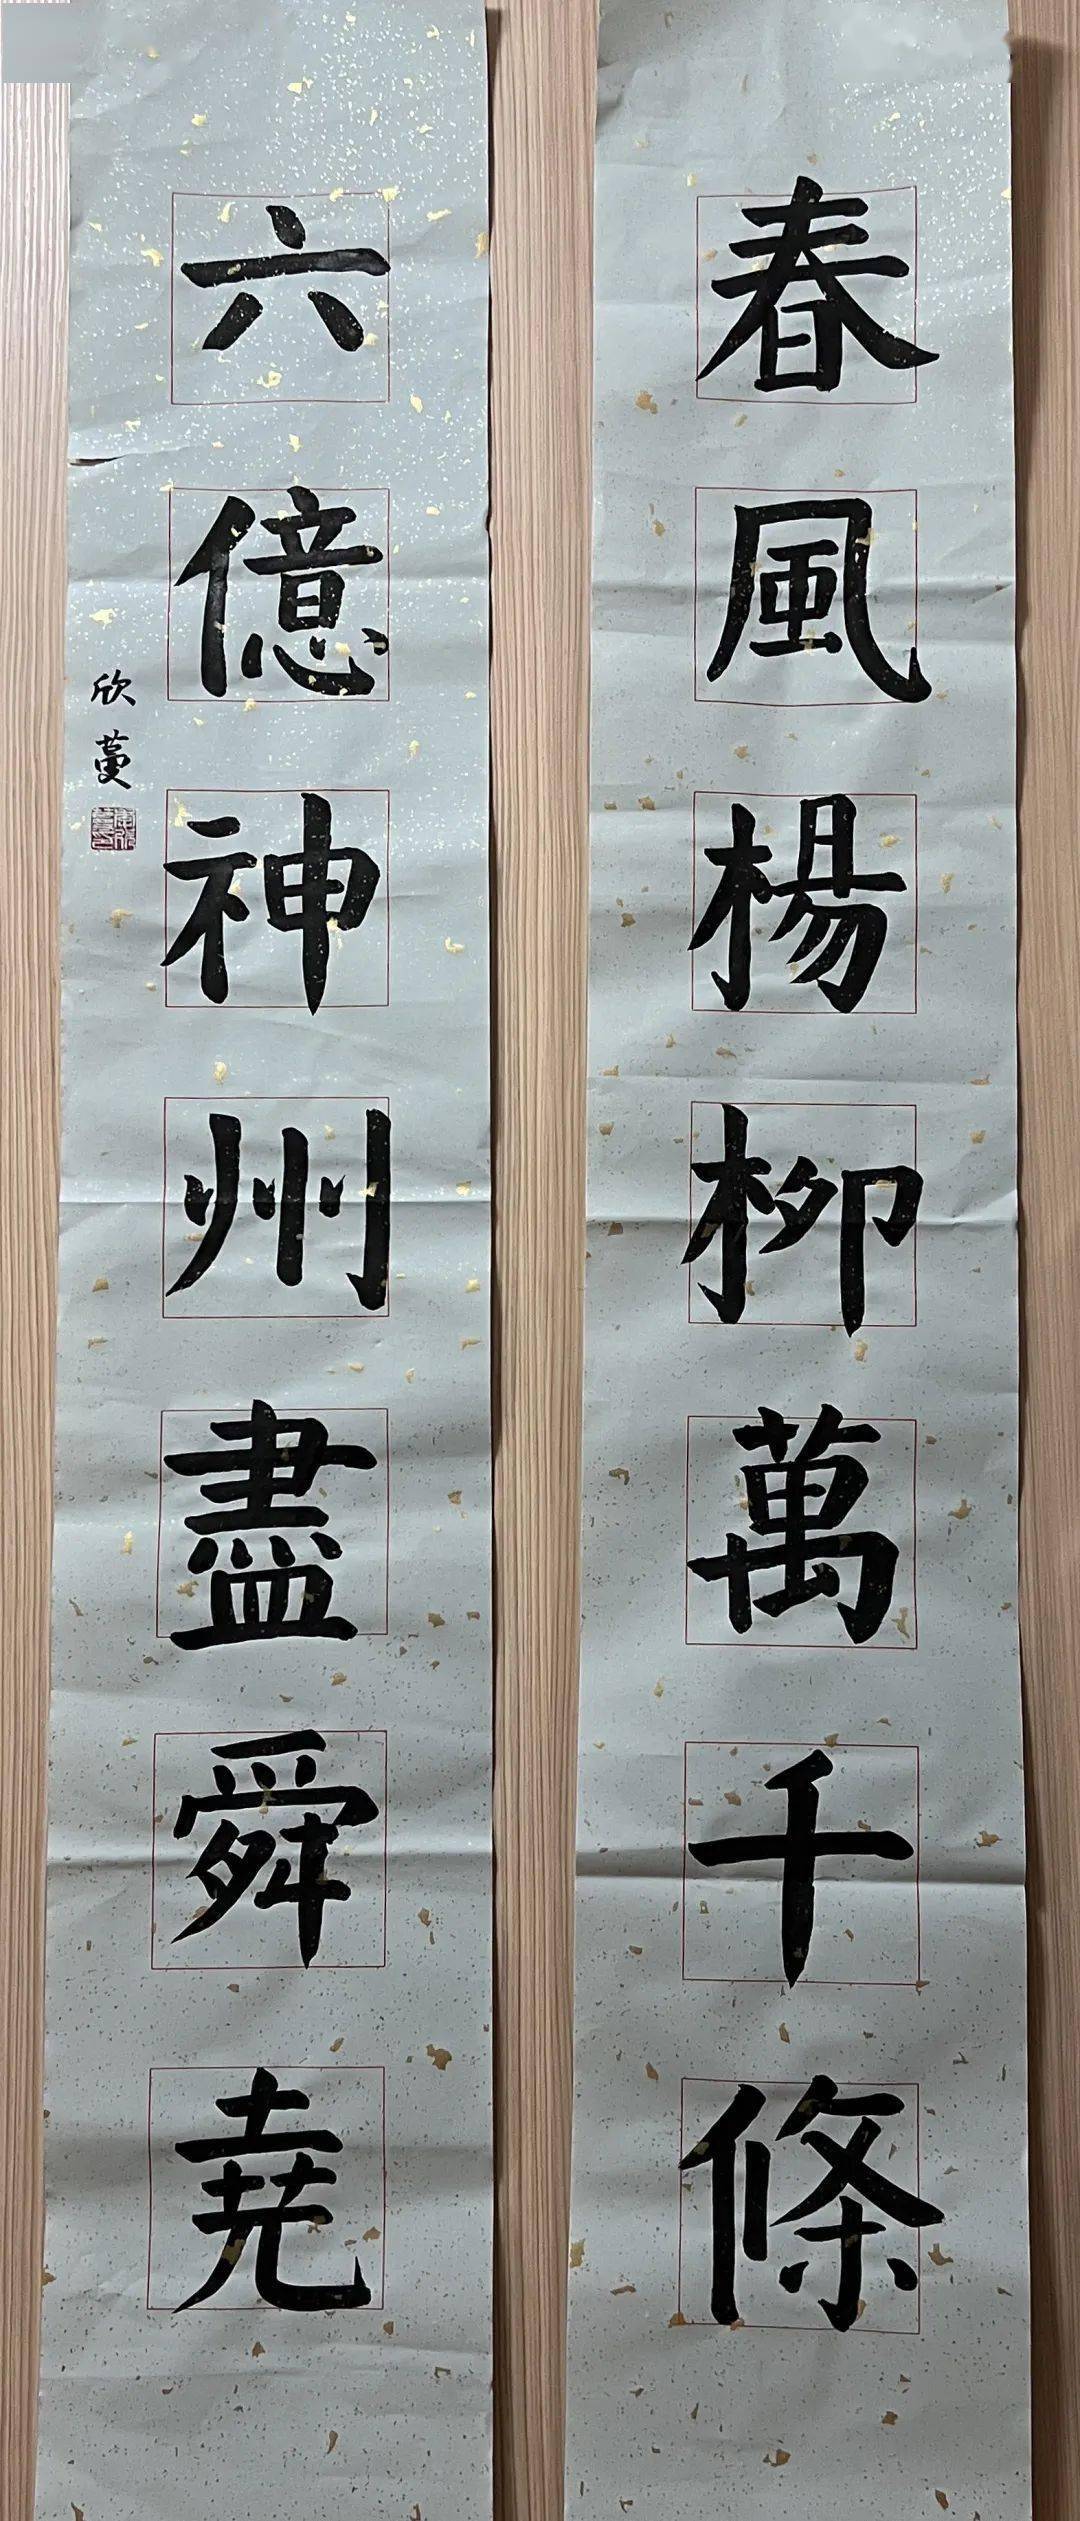 春風楊柳萬千條
六億神州盡舜堯
欣蔓